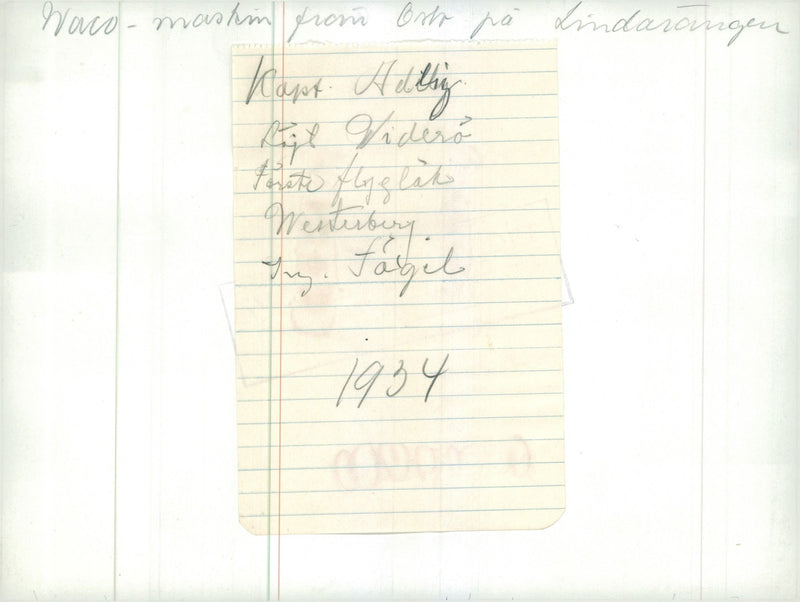 Waco-maskin från Oslo på Lindarängen
Kapt.
Widerö
Förste flygläk
Westerberg.
Ing. Fågel
1934